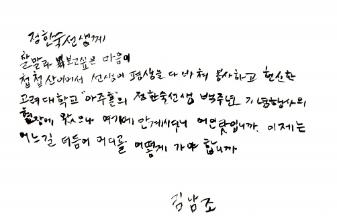 정한숙선생님께
참말로 뵙고싶은 마음에
첩첩산이에서 선생이 평생을 다 바쳐 봉사하고 헌신한
고려대학교 "아주홀"의 정한숙선생 백주년 기념행사의
현장에 왔으나 여기에 안계시다니 어인탓입니까. 이제는
어느길 더듬어 머디로 어떻게 가야 합니까
김남조